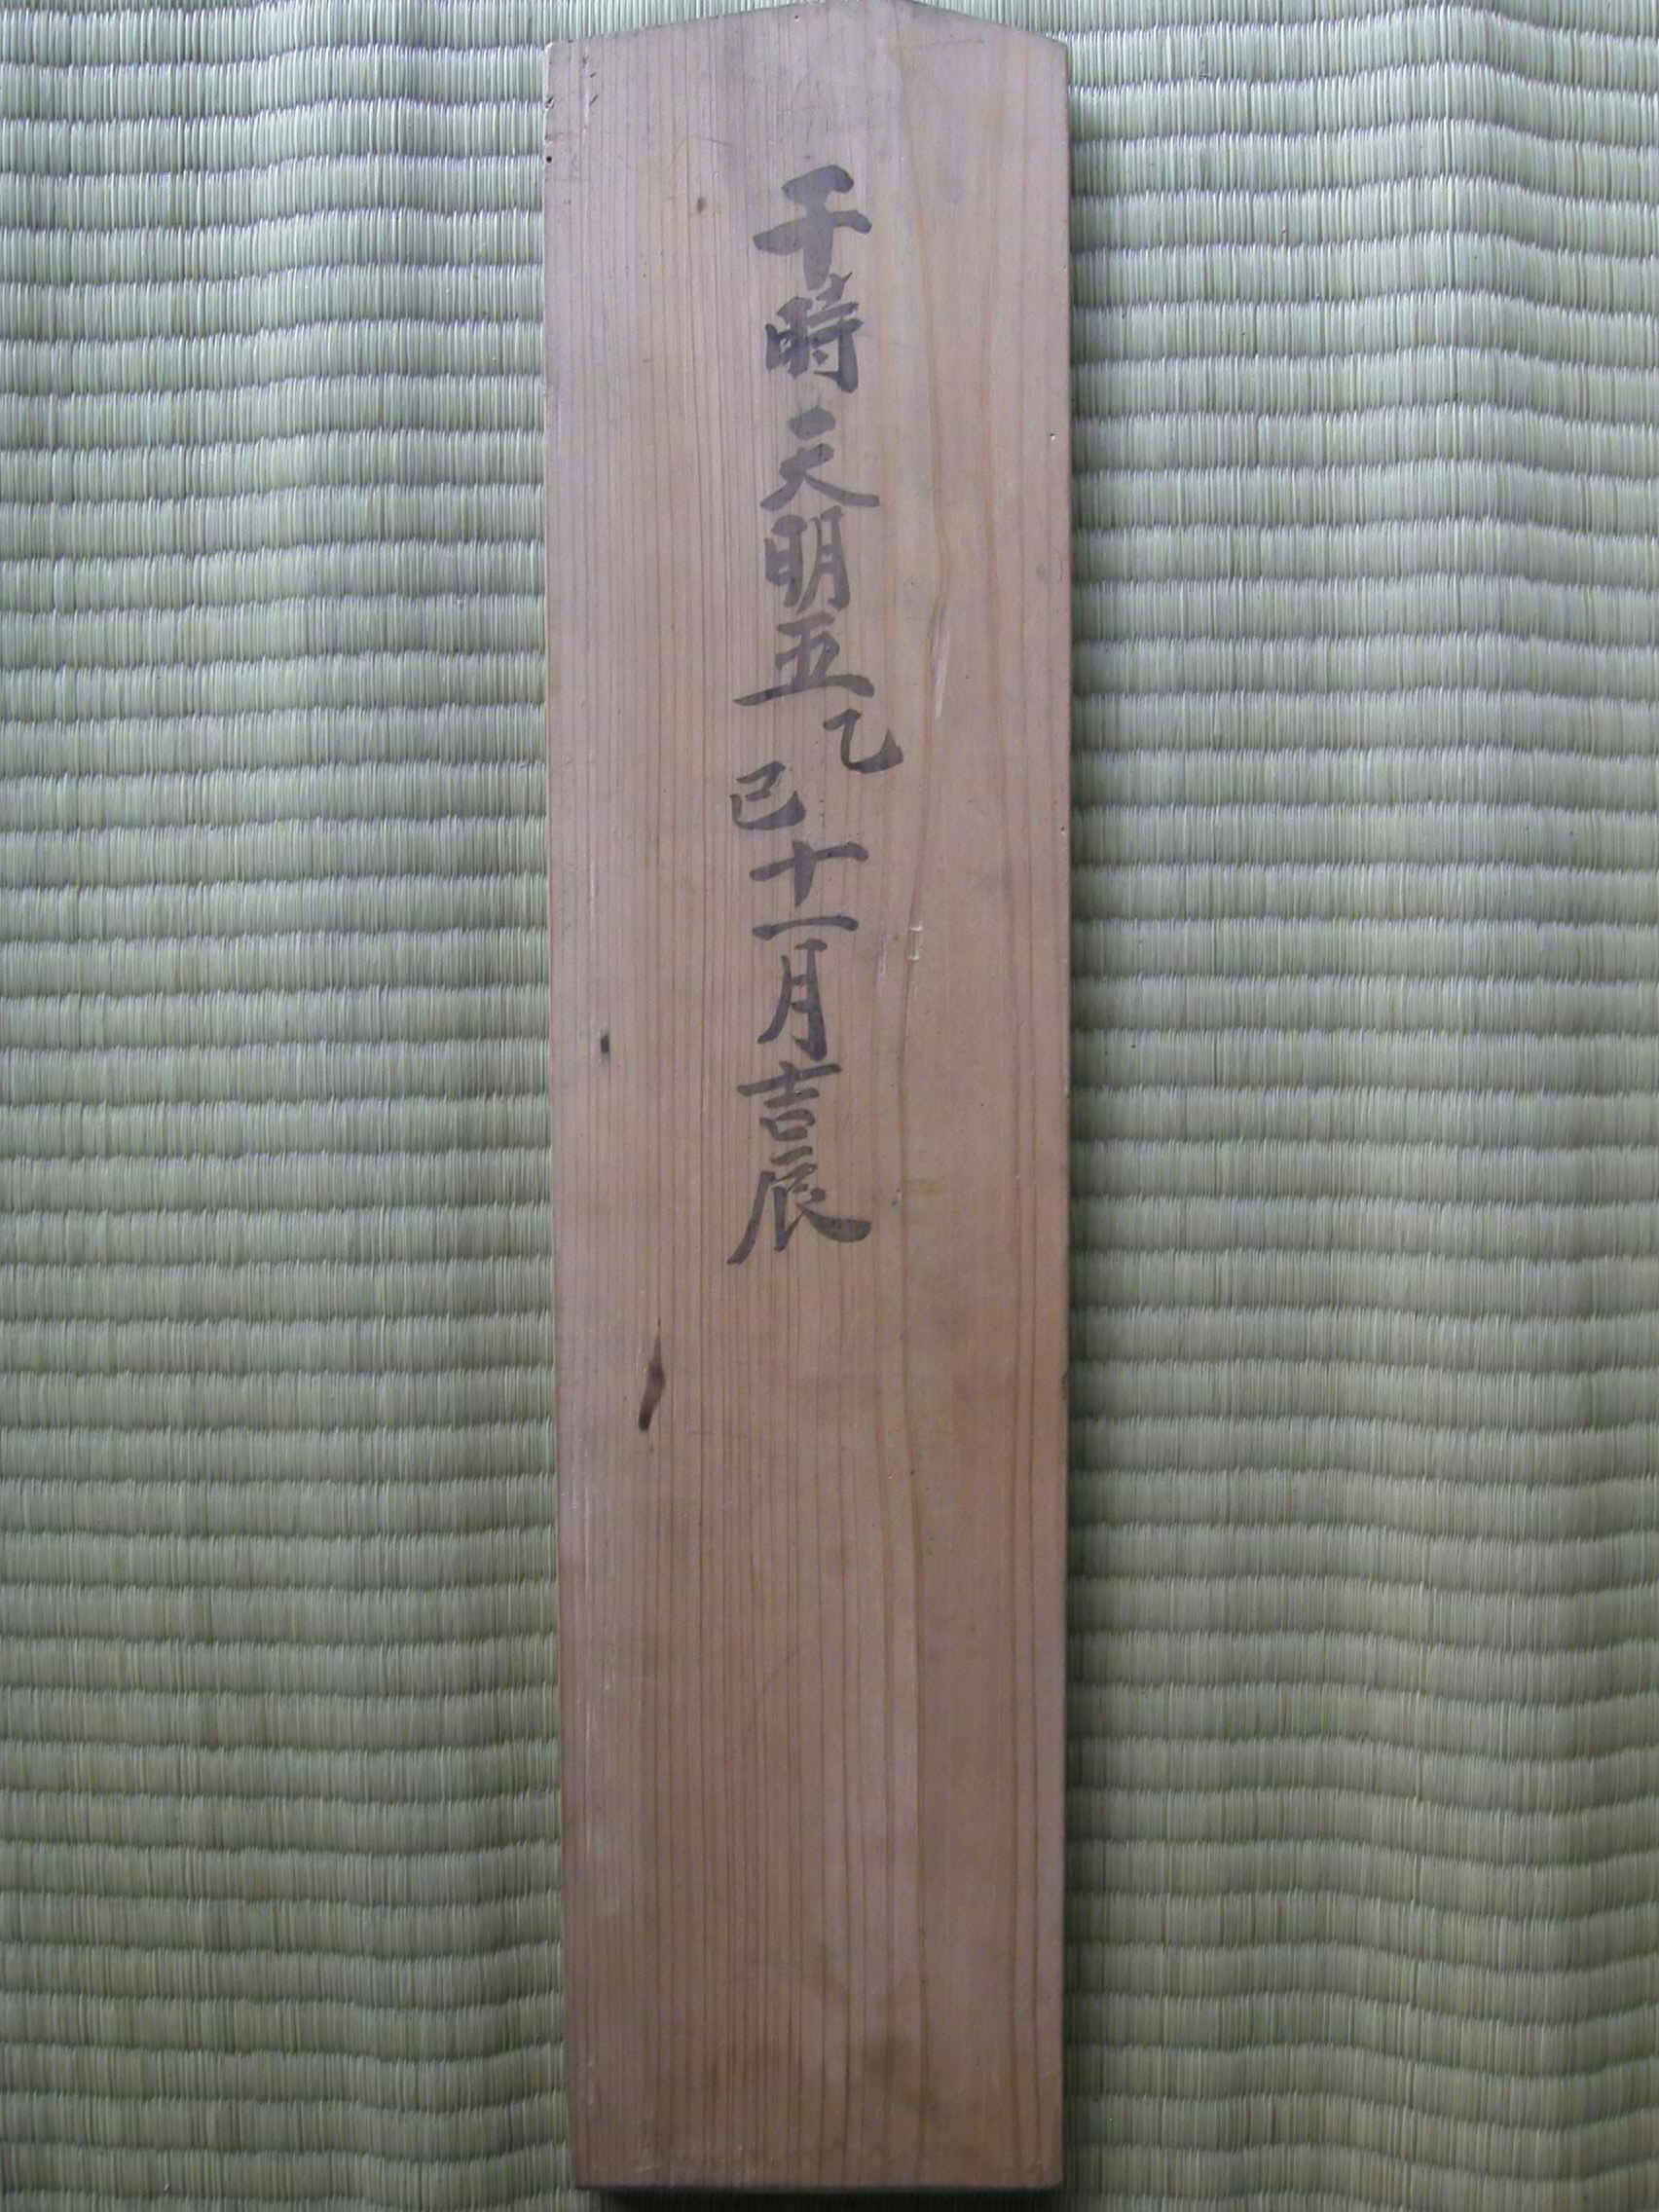 于時天明五乙巳十一月吉辰